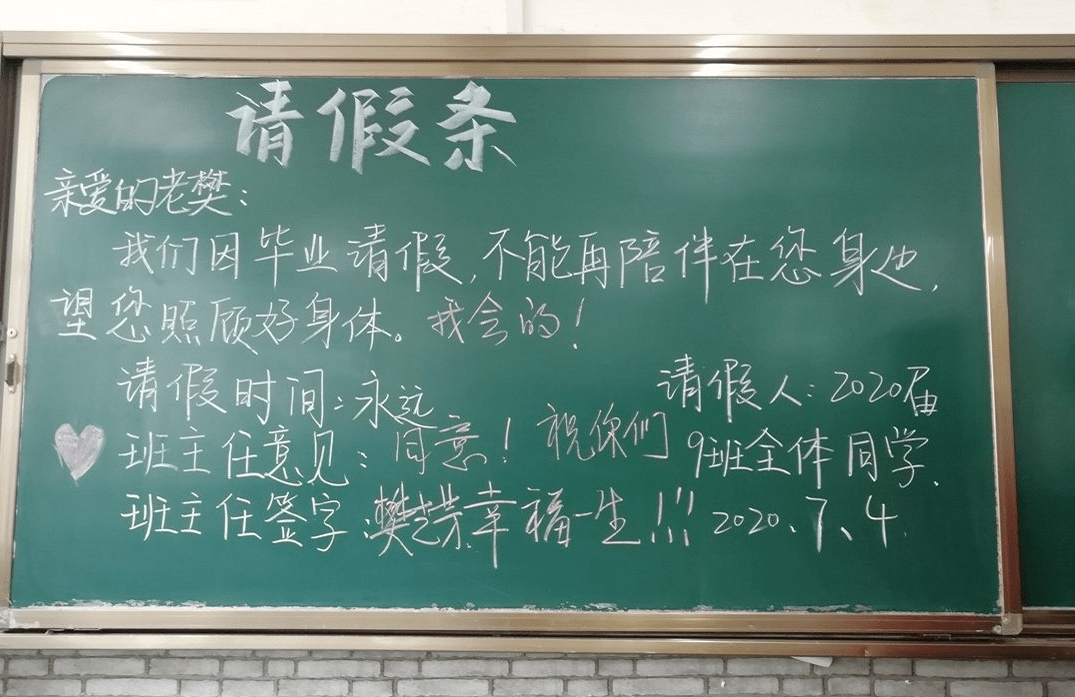 请假条
亲爱的老樊：
我们因毕业请假，不能再陪伴在您身边，
望您照顾好身体。我会的！
请假时间：永远
请假人：2020届
班主任意见：同意！祝你们
9班全体同学.
班主任签字：樊芝荣幸福一生！！！
2020、7、4.